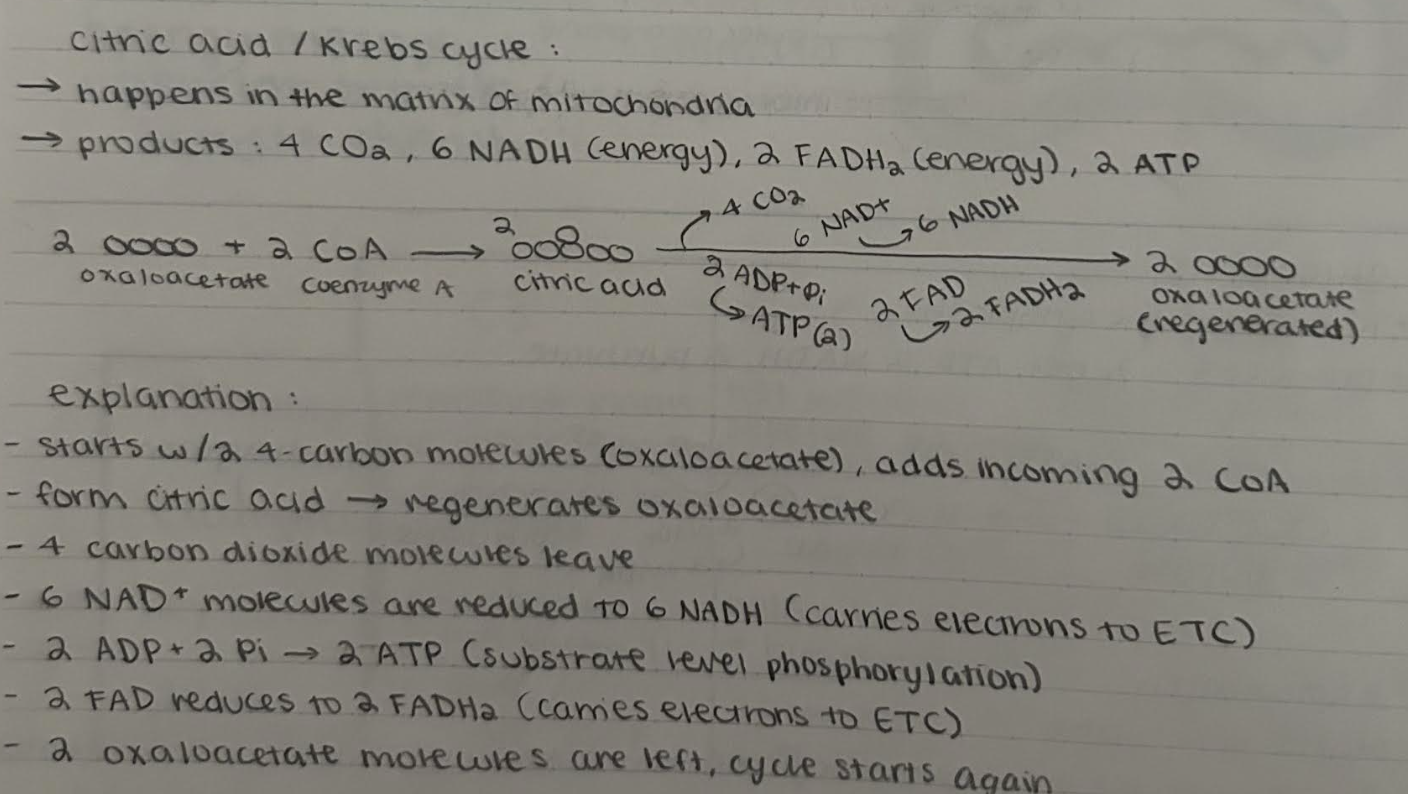 citric acid / Krebs cycle :
→ happens in the matrix of mitochondria
→ products : 4 CO2, 6 NADH (energy), 2 FADH2 (energy), 2 ATP
4 CO2
6 NAD+ 6 NADH
2 oooo + 2 CoA → 2 oo8oo → 2 oooo
oxaloacetate coenzyme A citric acid 2 ADP+Pi 2 FAD 2 FADH2 oxaloacetate
ATP (2) (regenerated)
explanation :
- starts w/2 4-carbon molecules (oxaloacetate), adds incoming 2 CoA
- form citric acid → regenerates oxaloacetate
- 4 carbon dioxide molecules leave
- 6 NAD+ molecules are reduced to 6 NADH (carries electrons to ETC)
- 2 ADP + 2 Pi → 2 ATP (substrate level phosphorylation)
- 2 FAD reduces to 2 FADH2 (carries electrons to ETC)
- 2 oxaloacetate molecules are left, cycle starts again